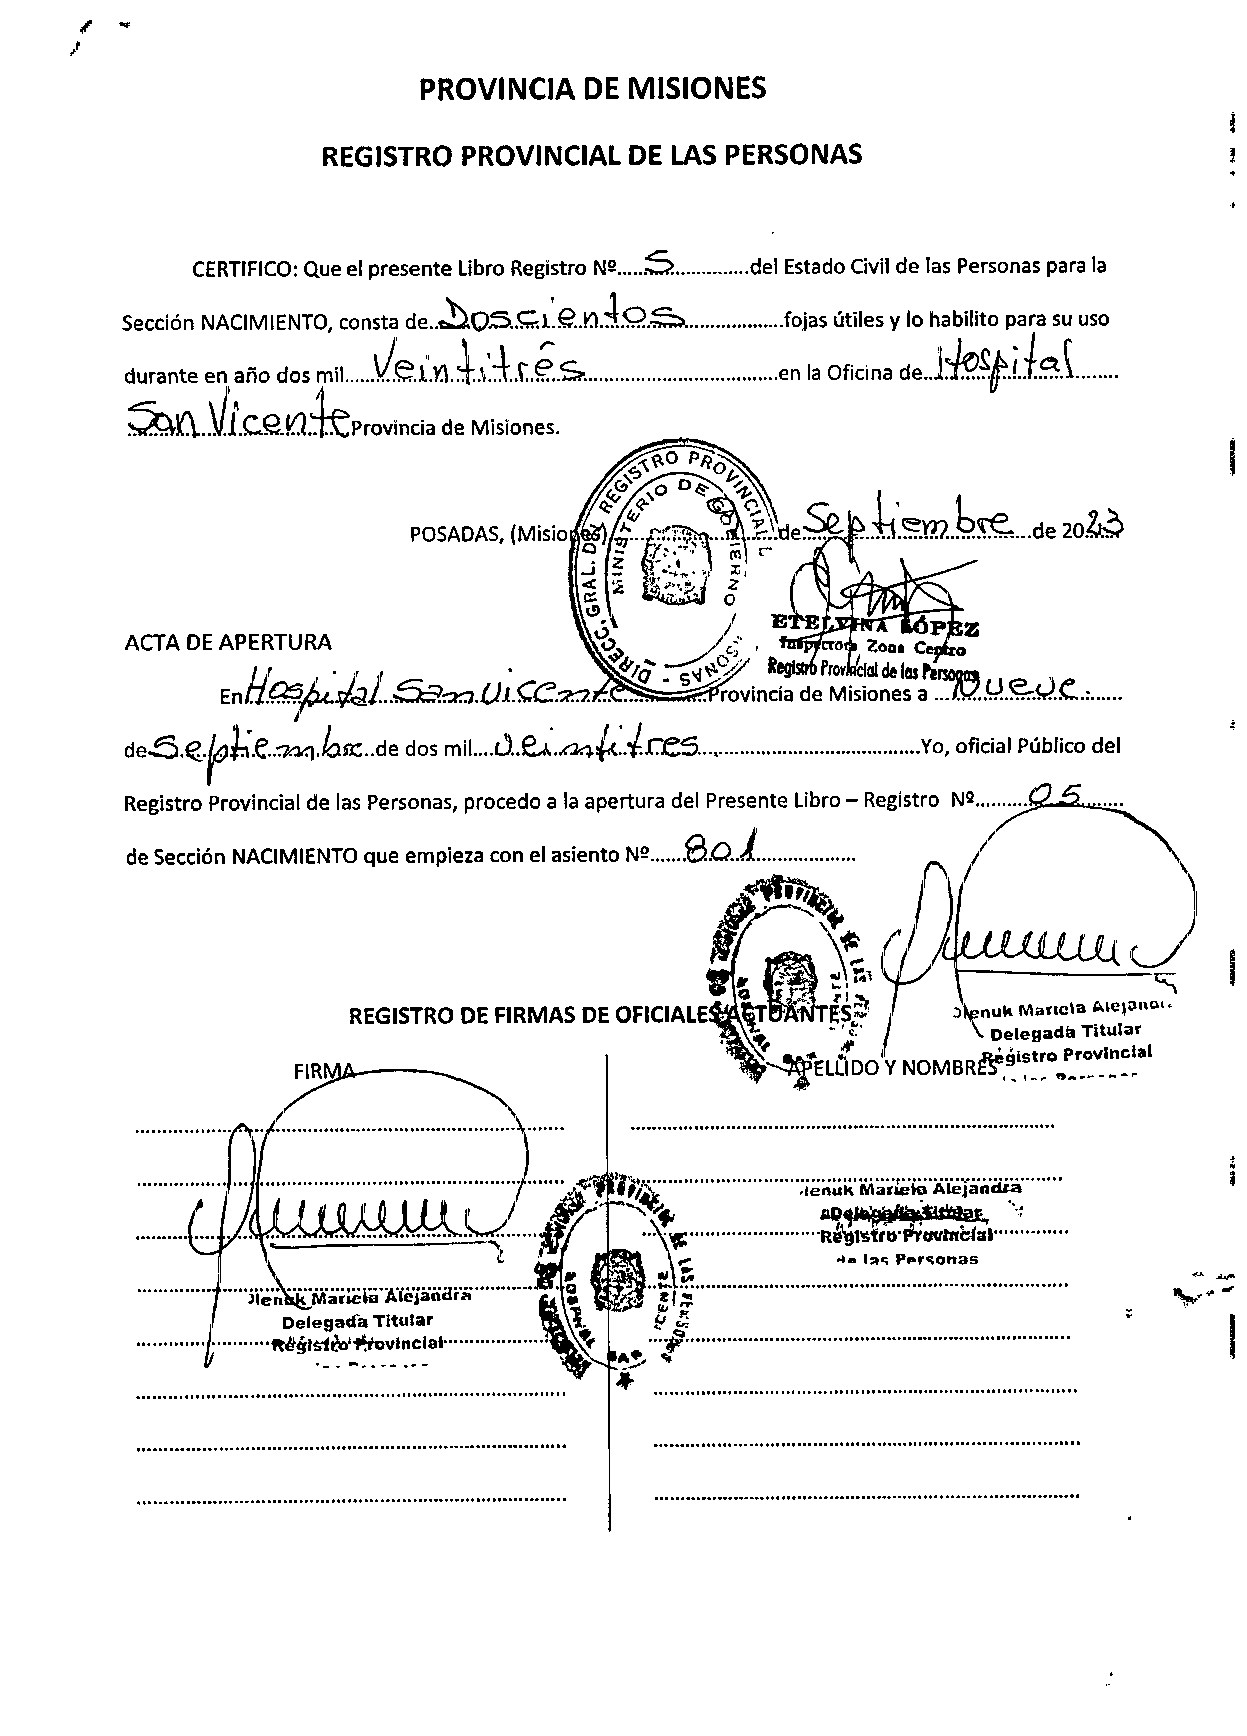 PROVINCIA DE MISIONES
REGISTRO PROVINCIAL DE LAS PERSONAS
CERTIFICO: Que el presente Libro Registro Nº.....5..............del Estado Civil de las Personas para la
Sección NACIMIENTO, consta de..Doscientos..................fojas útiles y lo habilito para su uso
durante en año dos mil.....Veintitrés.................................en la Oficina de..Hospital........
San Vicente Provincia de Misiones.
DIRECC. GRAL. DEL REGISTRO PROVINCIAL
MINISTERIO DE GOBIERNO
POSADAS, (Misiones) de Septiembre...de 2023
ETELVINA LÓPEZ
Inspectora Zona Centro
Registro Provincial de las Personas
ACTA DE APERTURA
En Hospital San Vicente Provincia de Misiones a ...Nueve......
de Septiembre..de dos mil....veintitres..................................Yo, oficial Público del
Registro Provincial de las Personas, procedo a la apertura del Presente Libro – Registro Nº.........05.......
de Sección NACIMIENTO que empieza con el asiento Nº......801..................
Mariela Alejandra
Delegada Titular
Registro Provincial
REGISTRO DE FIRMAS DE OFICIALES ACTUANTES
FIRMA APELLIDO Y NOMBRES
Mariela Alejandra
Delegada Titular
Registro Provincial
de las Personas
Mariela Alejandra
Delegada Titular
Registro Provincial